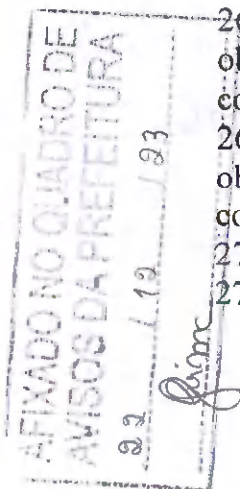 AFIXADO NO QUADRO DE
AVISOS DA PREFEITURA
22 / 12 / 23
2
ob
co
2
ob
co
27
27